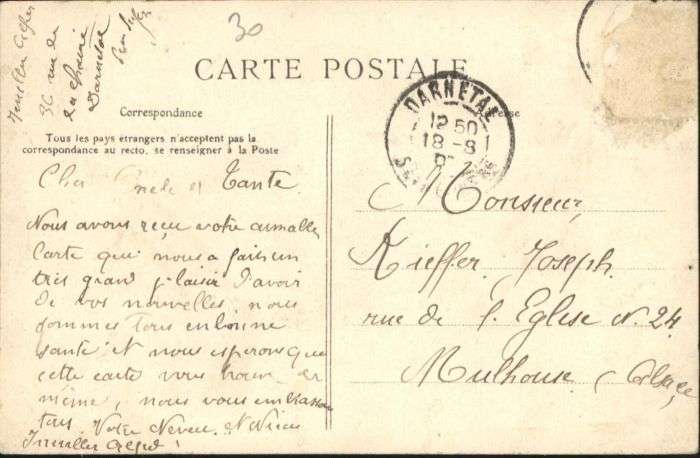 30
36 rue de
la chaine
Darnetal
CARTE POSTALE
Correspondance
Tous les pays étrangers n'acceptent pas la
correspondance au recto, se renseigner à la Poste
DARNETAL
12 50
18 - 8
Cher Oncle et Tante.
Nous avons reçu votre aimable
Carte qui nous a fait un
très grand plaisir d'avoir
de vos nouvelles, nous
sommes tous en bonne
santé et nous esperons que
cette carte vous trouve de
même, nous vous embrassons
tous. Votre Neveu et Nièce
Monsieur,
Kieffer Joseph
rue de l'Eglise N. 24
Mulhouse (Alsace